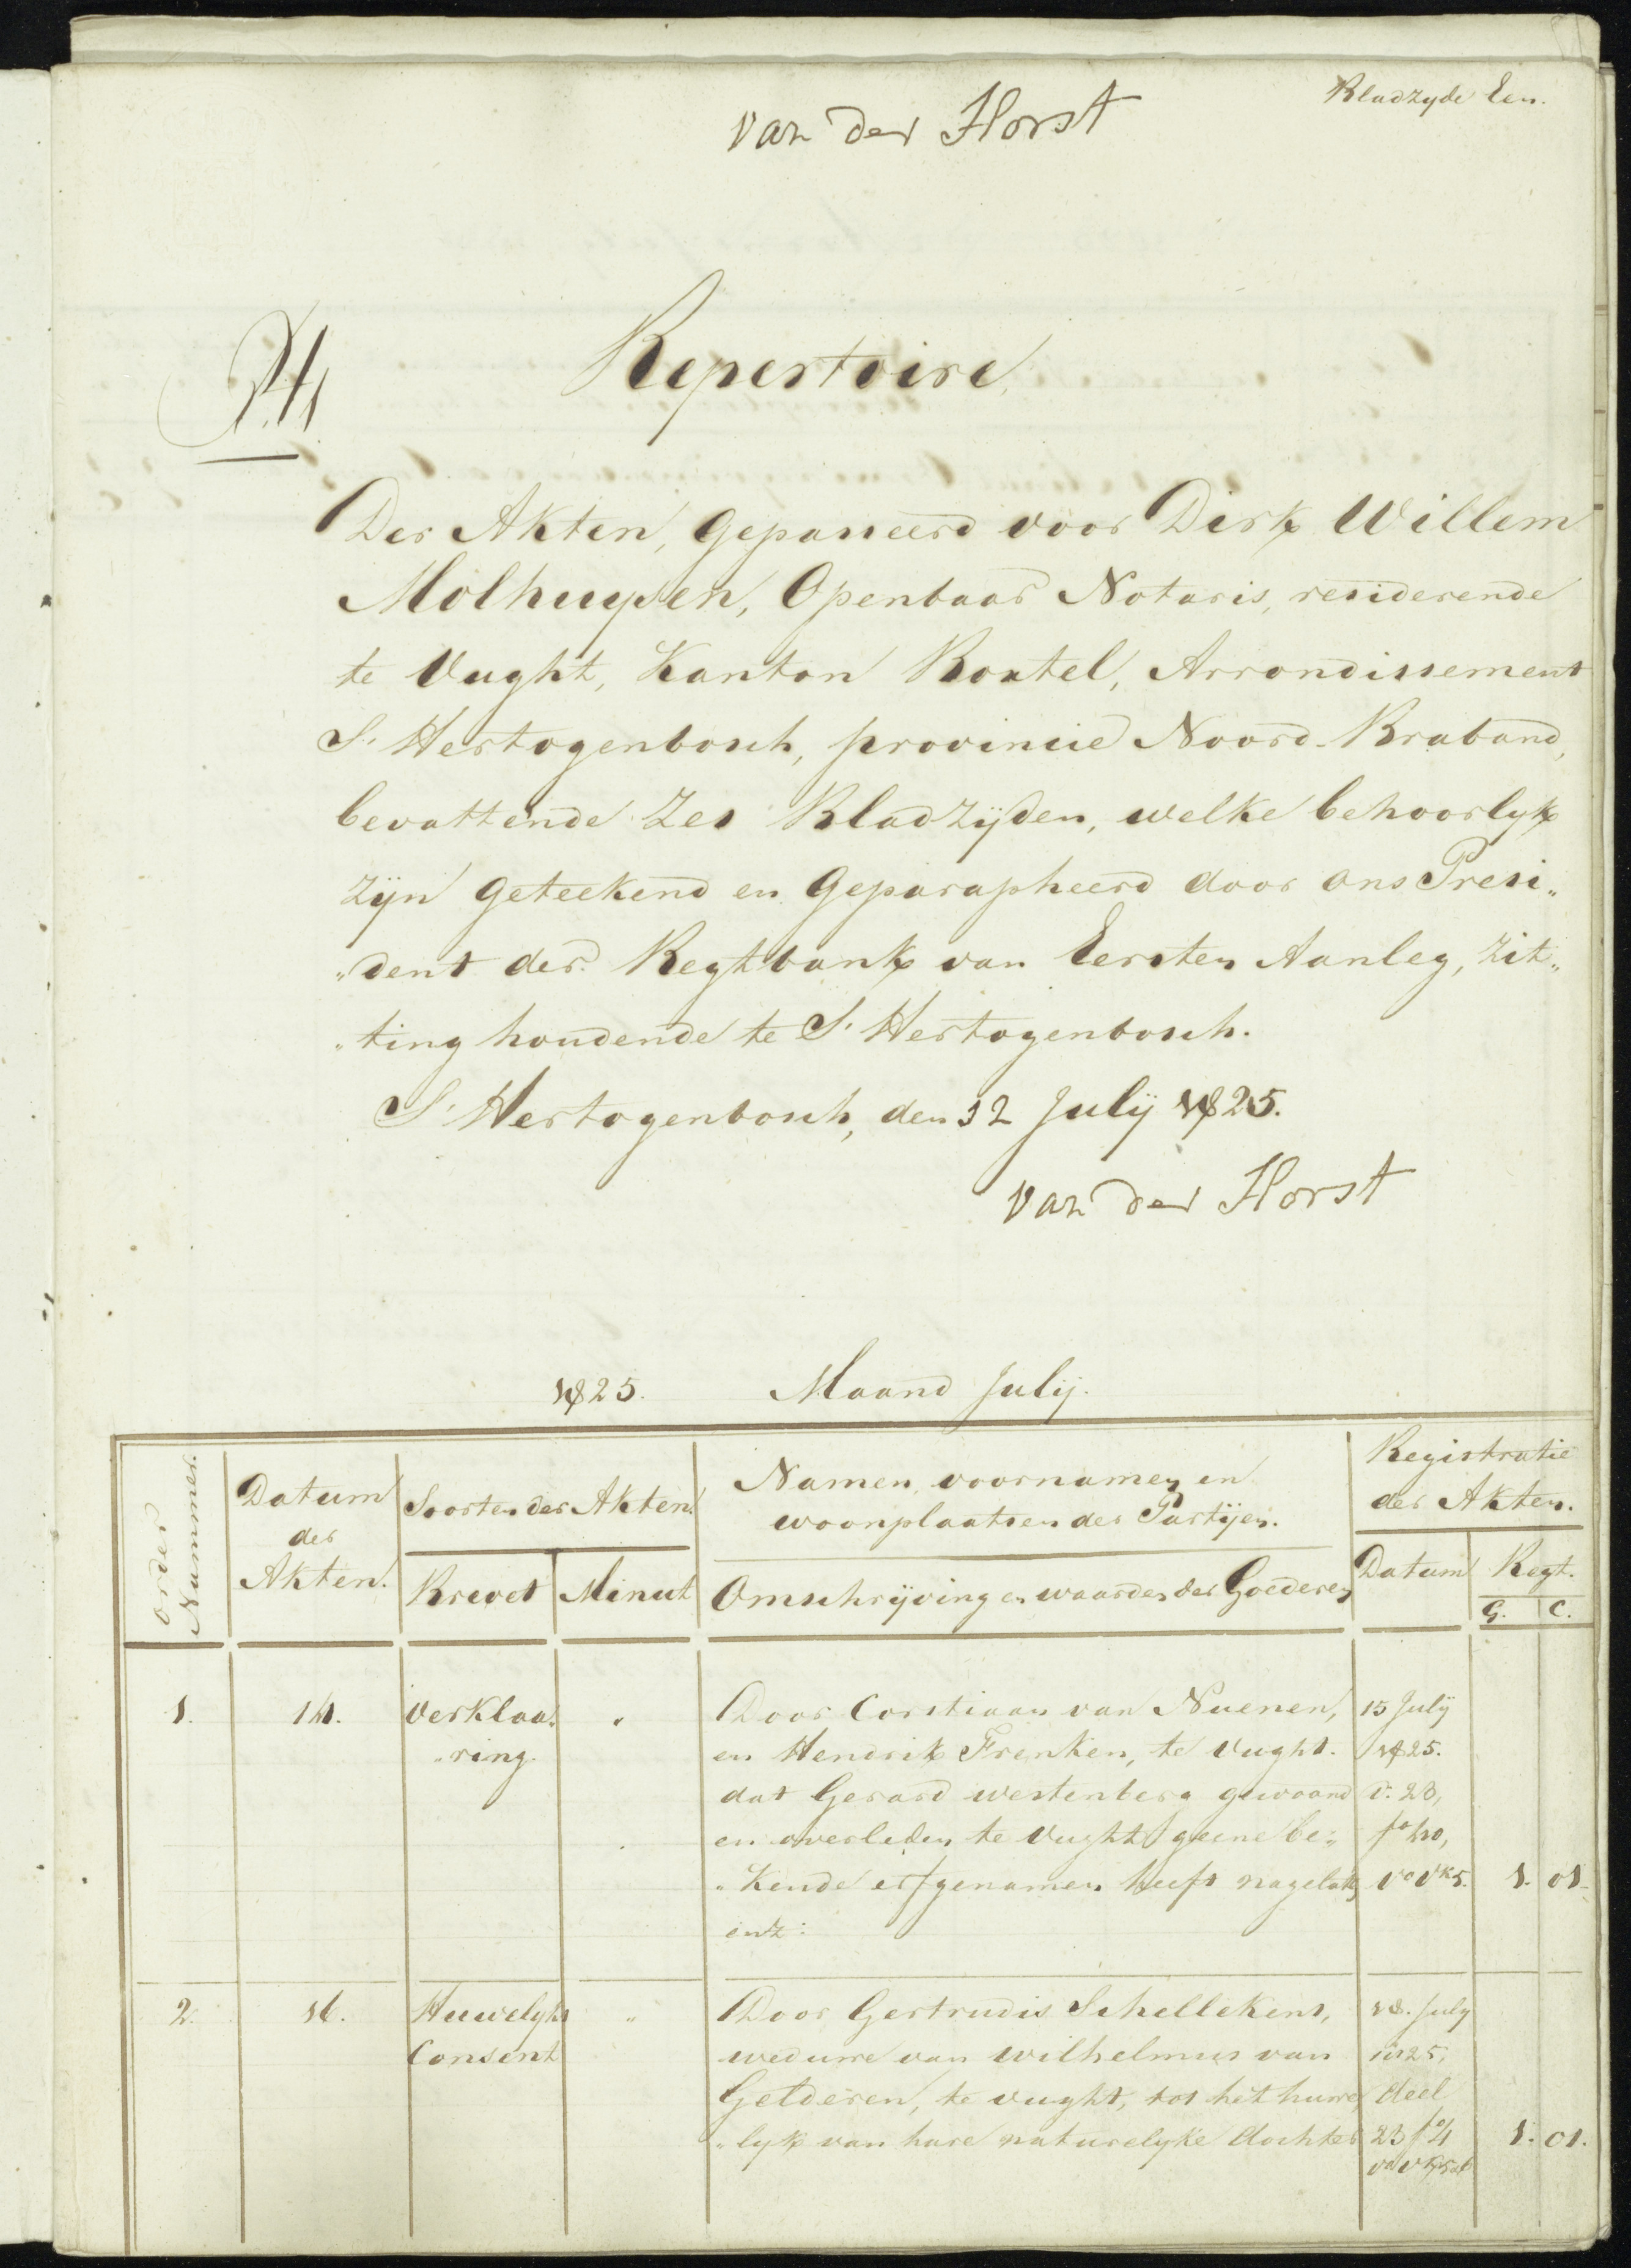 Bladzyde Een.
van der Horst
Repertoire
Der Akten, Gepasseerd voor Dirk Willem
Molhuysen, Openbaar Notaris, residerende
te Vught, Kanton Boxtel, Arrondissement
S. Hertogenbosch, provincie Noord-Braband,
bevattende Zes Bladzijden, welke behoorlyk
zijn Geteekend en Geparapheerd door ons Presi„
„dent der Regtbank van Eersten Aanleg, zit„
„ting houdende te S. Hertogenbosch.
S. Hertogenbosch, den 12 Julij 1825.
van der Horst
1825. Maand Julij.
Order Nummer.
Datum der Akten.
Soorten der Akten.
Brevet
Minut
Namen, voornamen en
woonplaatsen der Partijen.
Omschrijving en waarden der Goederen
Registratie
der Akten.
Datum
Regt.
G. C.
1. 14. Verklaa„ „ Door Corstiaan van Nuenen, 15 July
„ring. en Hendrik Frenken, te Vught. 1825.
dat Gerard Westenberg gewoond D. 23,
en overleden te Vught geene be„ fo
„kende erfgenamen heeft nagelaten Vo Vk 5. 1. 01.
enz:
2. 16. Huwelyks „ Door Gertrudis Schellekens, 18. July
Consent weduwe van Wilhelmus van 1825,
Gelderen, te Vught, tot het huwe„ deel
„lyk van hare natuurelyke dochter 23 fo 4 1. 01.